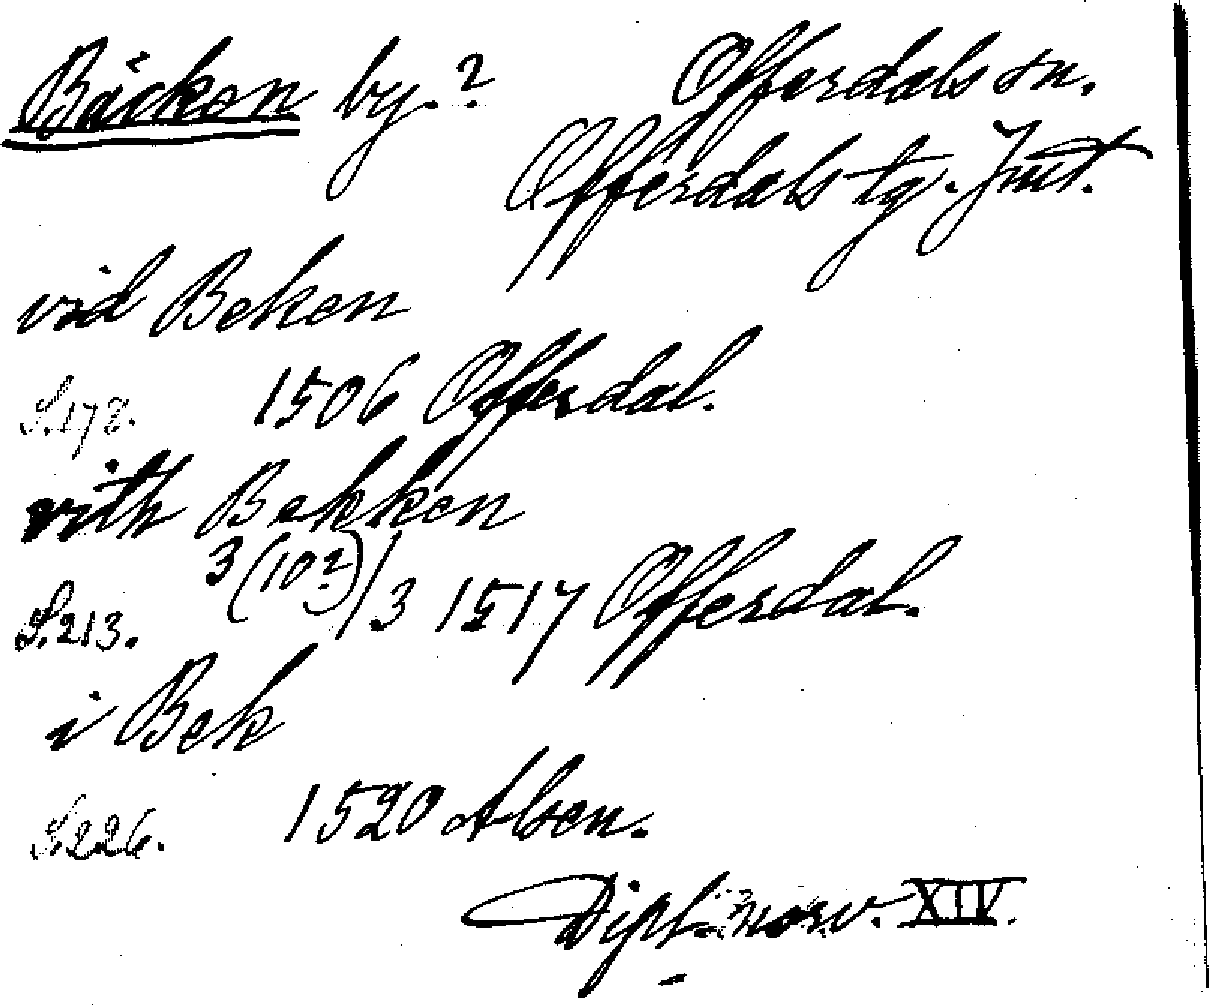 Bäcken by.? Offerdals sn.
Offerdals tg. Jmt.
vid Beken
S.178. 1506 Offerdal.
vith Bekken
S.213. 3(10?)/3 1517 Offerdal.
i Bek
S.226. 1520 Alsen.
Dipl. norv. XIV.